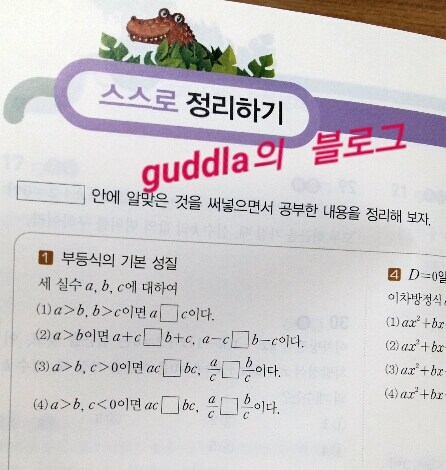 스스로 정리하기
guddla의 블로그
□ 안에 알맞은 것을 써넣으면서 공부한 내용을 정리해 보자.
1 부등식의 기본 성질
세 실수 a, b, c에 대하여
(1) a>b, b>c이면 a□c이다.
(2) a>b이면 a+c□b+c, a-c□b-c이다.
(3) a>b, c>0이면 ac□bc, a/c□b/c이다.
(4) a>b, c<0이면 ac□bc, a/c□b/c이다.
4 D=0일
이차방정식
(1) ax²+bx
(2) ax²+bx
(3) ax²+bx
(4) ax²+bx